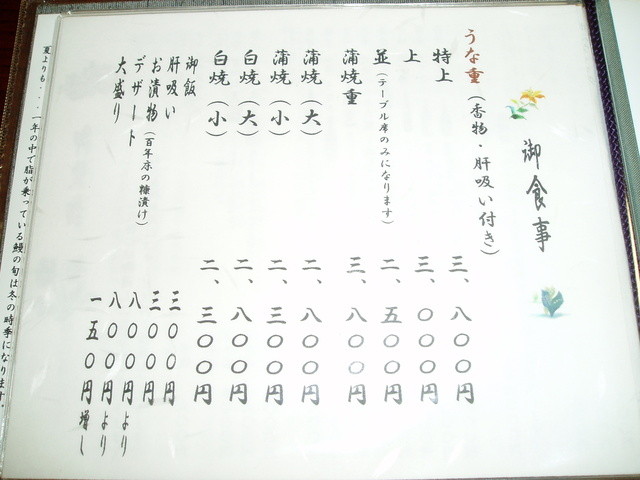 御食事
うな重（香物・肝吸い付き）
特上 三、八〇〇円
上 三、〇〇〇円
並（テーブル席のみになります） 二、五〇〇円
蒲焼重 三、八〇〇円
蒲焼（大） 二、八〇〇円
蒲焼（小） 二、三〇〇円
白焼（大） 二、八〇〇円
白焼（小） 二、三〇〇円
御飯 三〇〇円
肝吸い 三〇〇円
お漬物（百年床の糠漬け） 八〇〇円より
デザート 八〇〇円より
大盛り 一五〇円増し
夏よりも・・・一年の中で脂が乗っている鰻の旬は冬の時季になります。